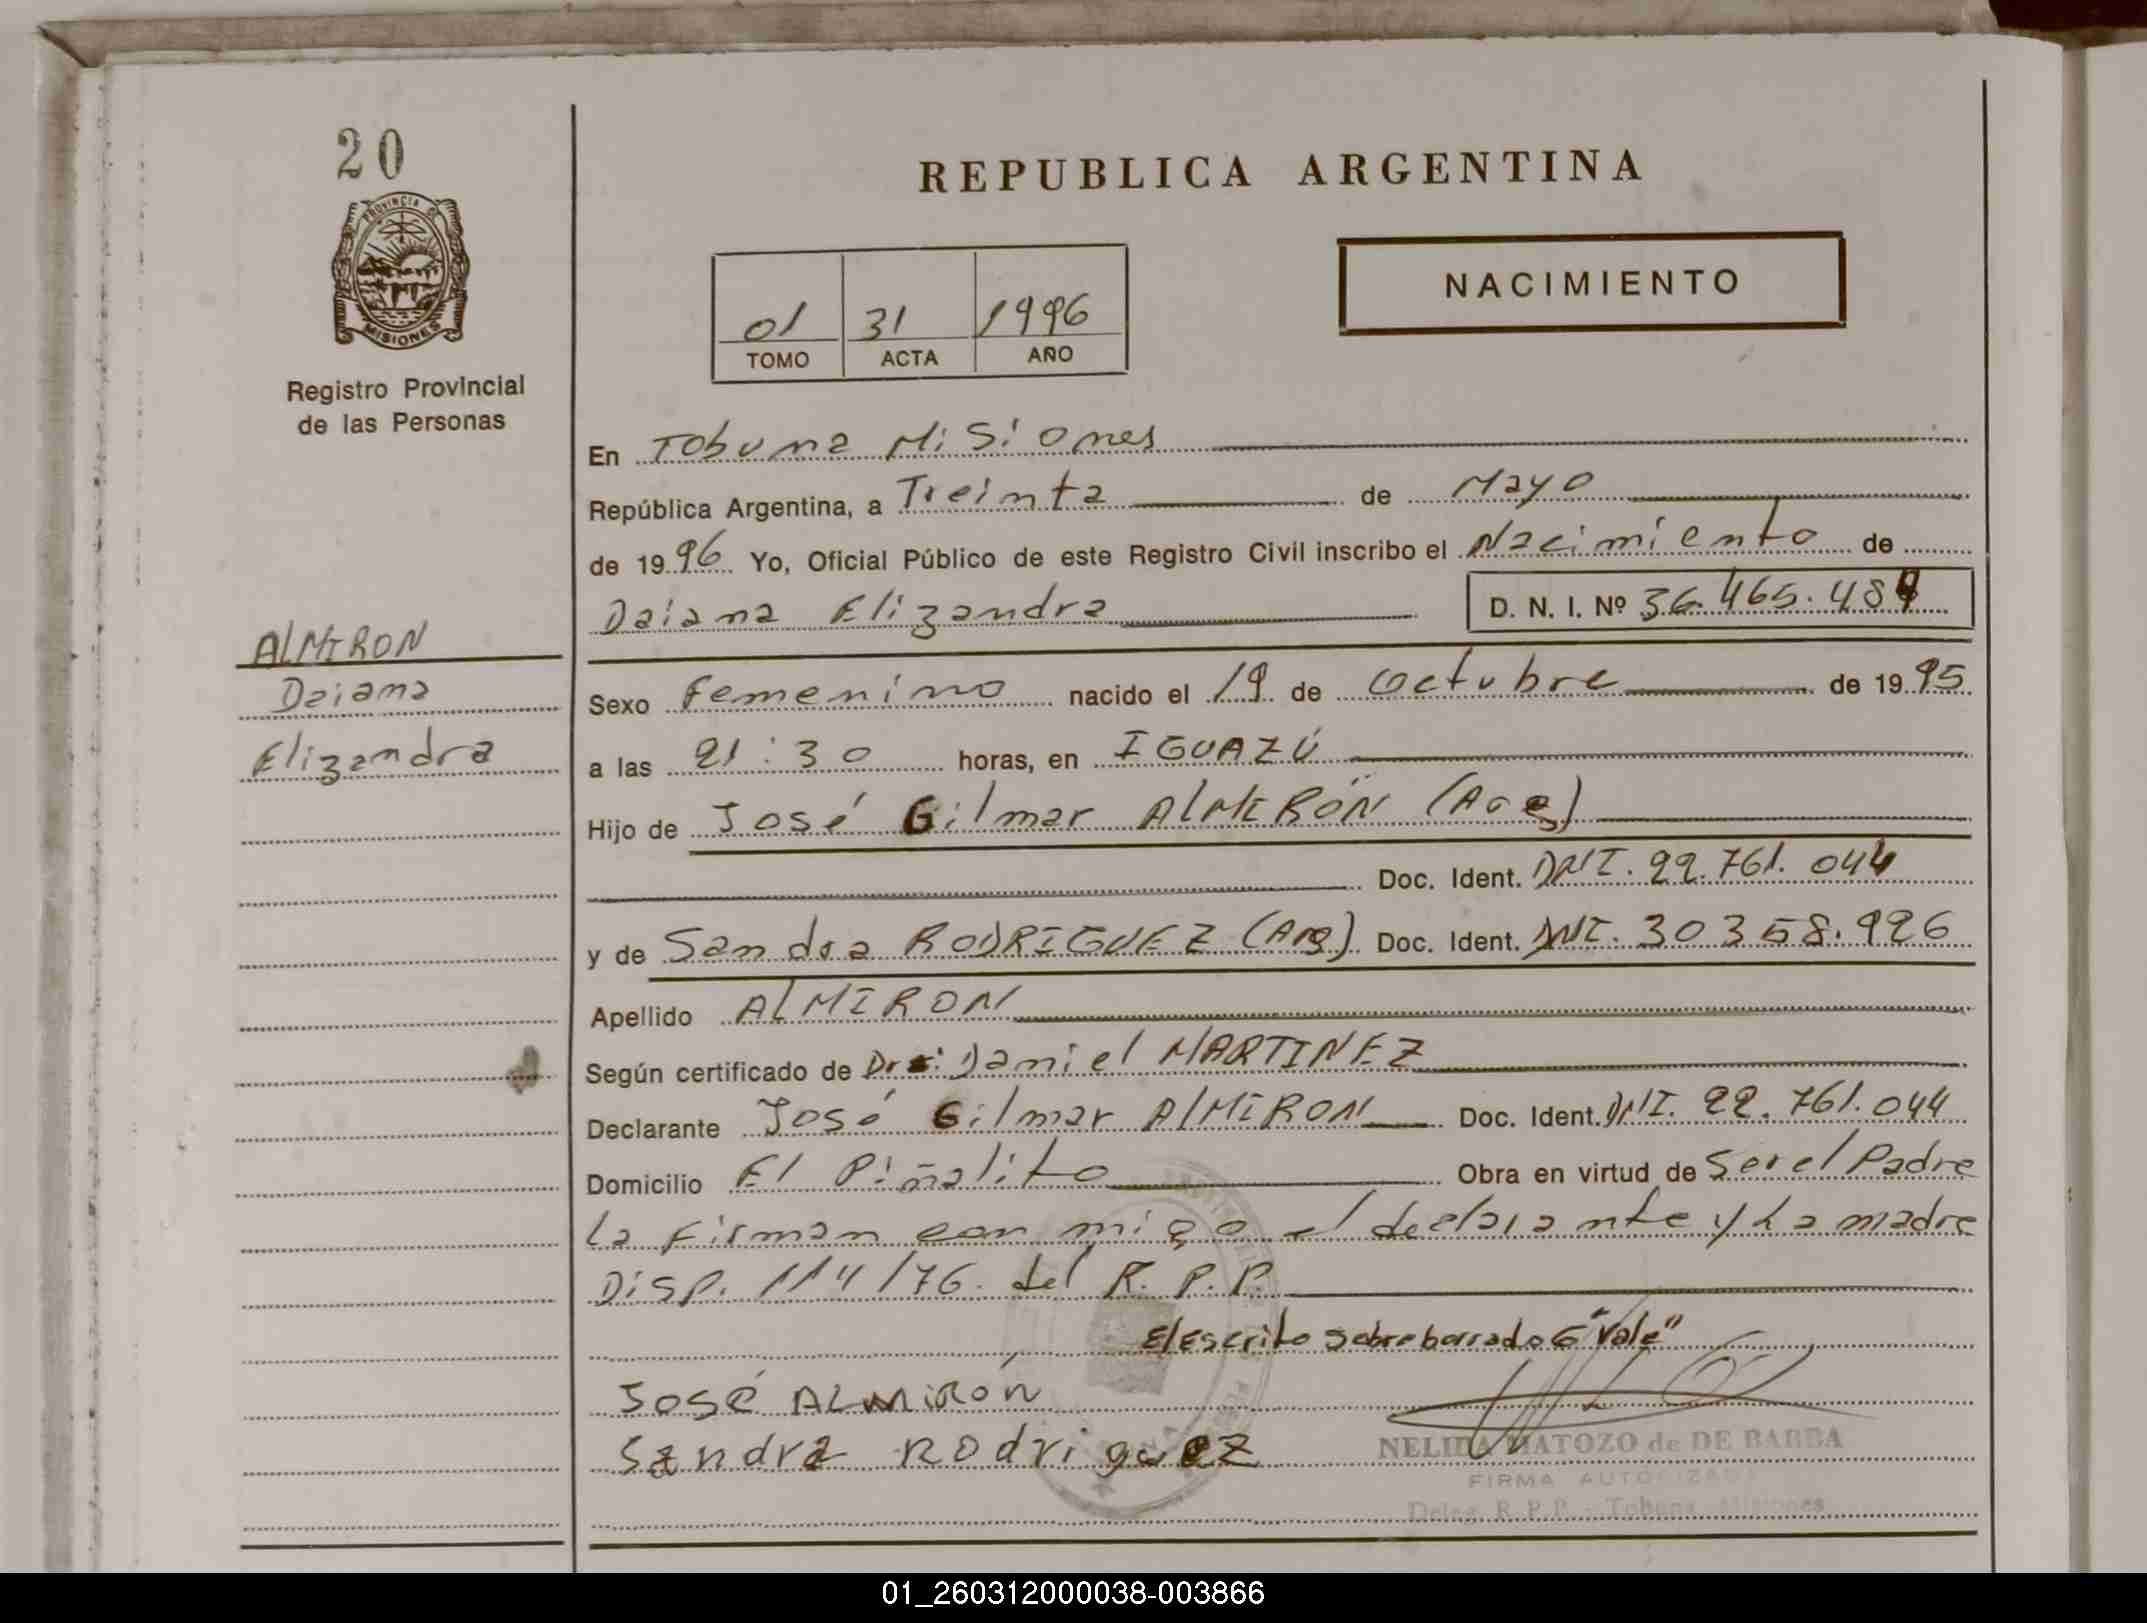 20
PROVINCIA DE
MISIONES
Registro Provincial
de las Personas
REPUBLICA ARGENTINA
NACIMIENTO
01 31 1996
TOMO ACTA AÑO
En Tobuna Misiones
República Argentina, a Treinta de Mayo
de 1996 Yo, Oficial Público de este Registro Civil inscribo el Nacimiento de
Daiana Elizandra D. N. I. Nº 36.465.484
ALMIRON
Daiana
Elizandra
Sexo Femenino nacido el 19 de Octubre de 1995
a las 21:30 horas, en IGUAZÚ
Hijo de José Gilmar ALMIRÓN (Arg)
Doc. Ident. DNI. 22.761.044
y de Sandra RODRIGUEZ (Arg) Doc. Ident. DNI. 30358.926
Apellido ALMIRON
Según certificado de Dr: Daniel MARTINEZ
Declarante José Gilmar ALMIRON Doc. Ident. DNI. 22.761.044
Domicilio El Piñalito Obra en virtud de Ser el Padre
la Firman con migo el declarante y La madre
Disp. 114/76. del R.P.P.
El Escrito Sobre borrado G "Vale"
José ALMIRÓN
Sandra Rodriguez
NELIDA MATOZO de DE BARBA
FIRMA AUTORIZADA
Deleg. R.P.P. - Tobuna - Misiones
01_260312000038-003866